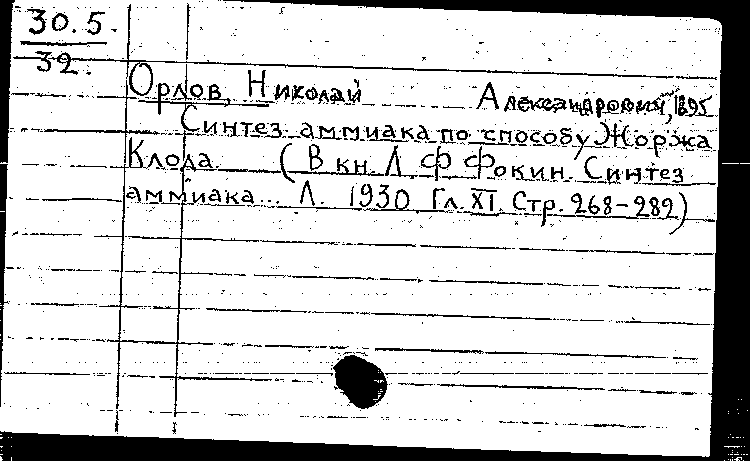 30.5.
32.
Орлов, Николай Александрович, 1895
Синтез аммиака по способу Жоржа
Клода. (В кн. Л. Ф. Фокин. Синтез
аммиака... Л. 1930 Гл. XI. Стр. 268-289)